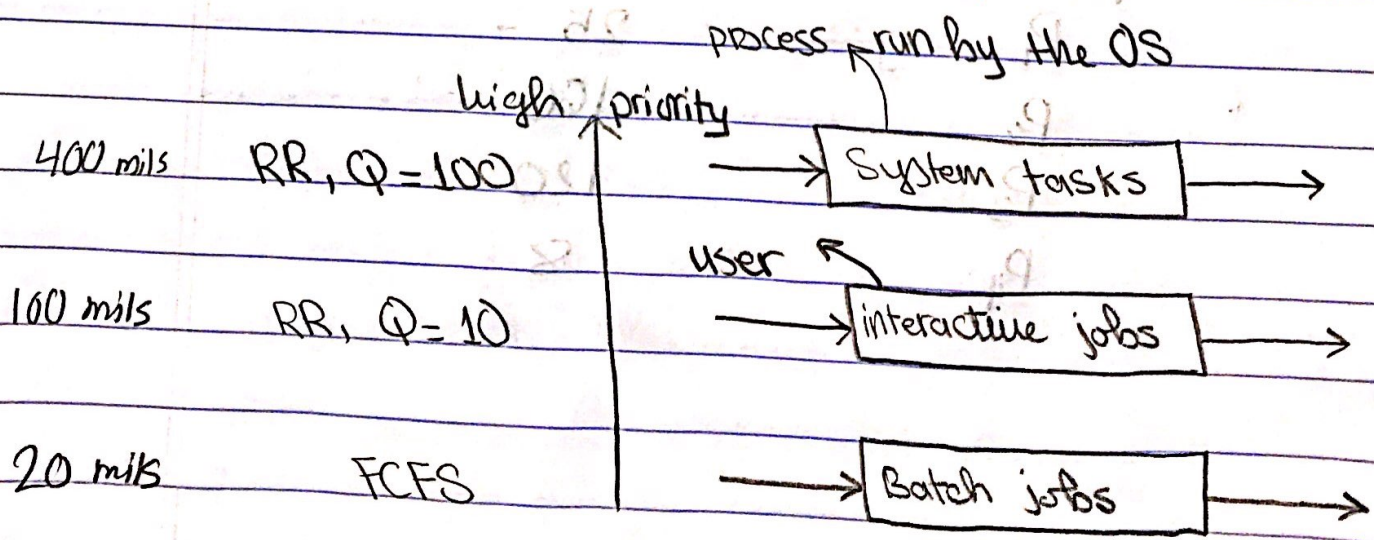 process run by the OS
high priority
400 mils RR, Q=100 System tasks
user
100 mils RR, Q=10 interactive jobs
20 mils FCFS Batch jobs